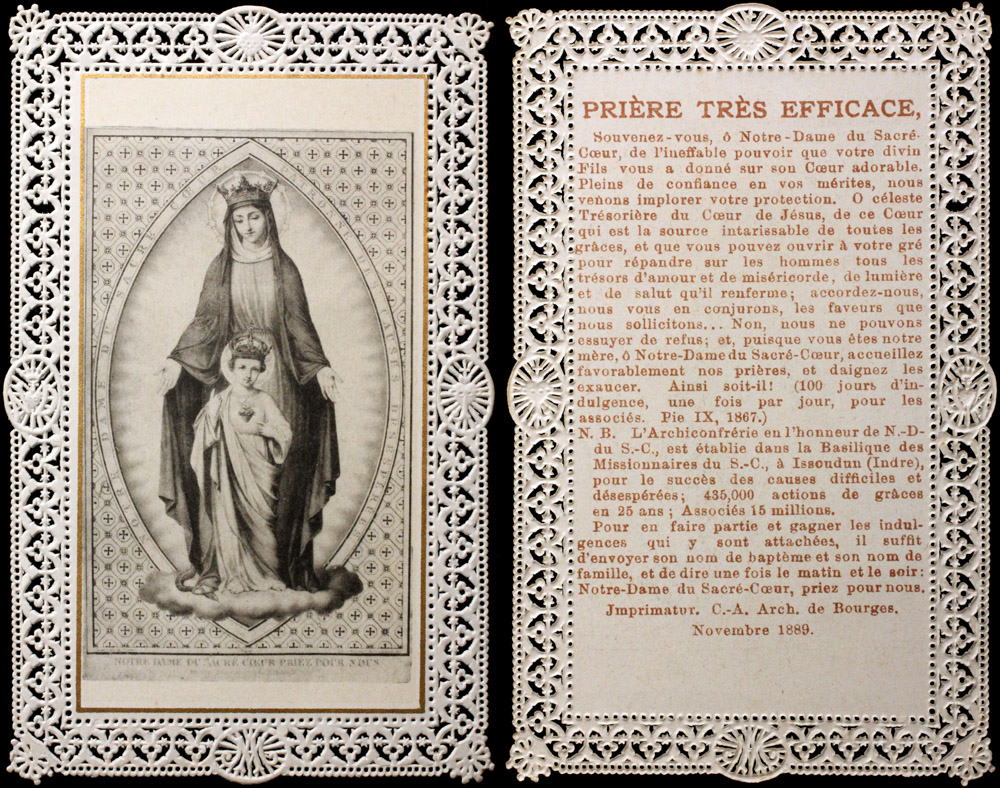 NOTRE DAME DU SACRÉ CŒUR PRIEZ POUR NOUS
PRIÈRE TRÈS EFFICACE,
Souvenez-vous, ô Notre-Dame du Sacré-
Cœur, de l'ineffable pouvoir que votre divin
Fils vous a donné sur son Cœur adorable.
Pleins de confiance en vos mérites, nous
venons implorer votre protection. O céleste
Trésorière du Cœur de Jésus, de ce Cœur
qui est la source intarissable de toutes les
grâces, et que vous pouvez ouvrir à votre gré
pour répandre sur les hommes tous les
trésors d'amour et de miséricorde, de lumière
et de salut qu'il renferme; accordez-nous,
nous vous en conjurons, les faveurs que
nous sollicitons... Non, nous ne pouvons
essuyer de refus; et, puisque vous êtes notre
mère, ô Notre-Dame du Sacré-Cœur, accueillez
favorablement nos prières, et daignez les
exaucer. Ainsi soit-il! (100 jours d'in-
dulgence, une fois par jour, pour les
associés. Pie IX, 1867.)
N. B. L'Archiconfrérie en l'honneur de N.-D-
du S.-C., est établie dans la Basilique des
Missionnaires du S.-C., à Issoudun (Indre),
pour le succès des causes difficiles et
désespérées; 435,000 actions de grâces
en 25 ans; Associés 15 millions.
Pour en faire partie et gagner les indul-
gences qui y sont attachées, il suffit
d'envoyer son nom de baptême et son nom de
famille, et de dire une fois le matin et le soir:
Notre-Dame du Sacré-Cœur, priez pour nous.
Imprimatur. C.-A. Arch. de Bourges.
Novembre 1889.